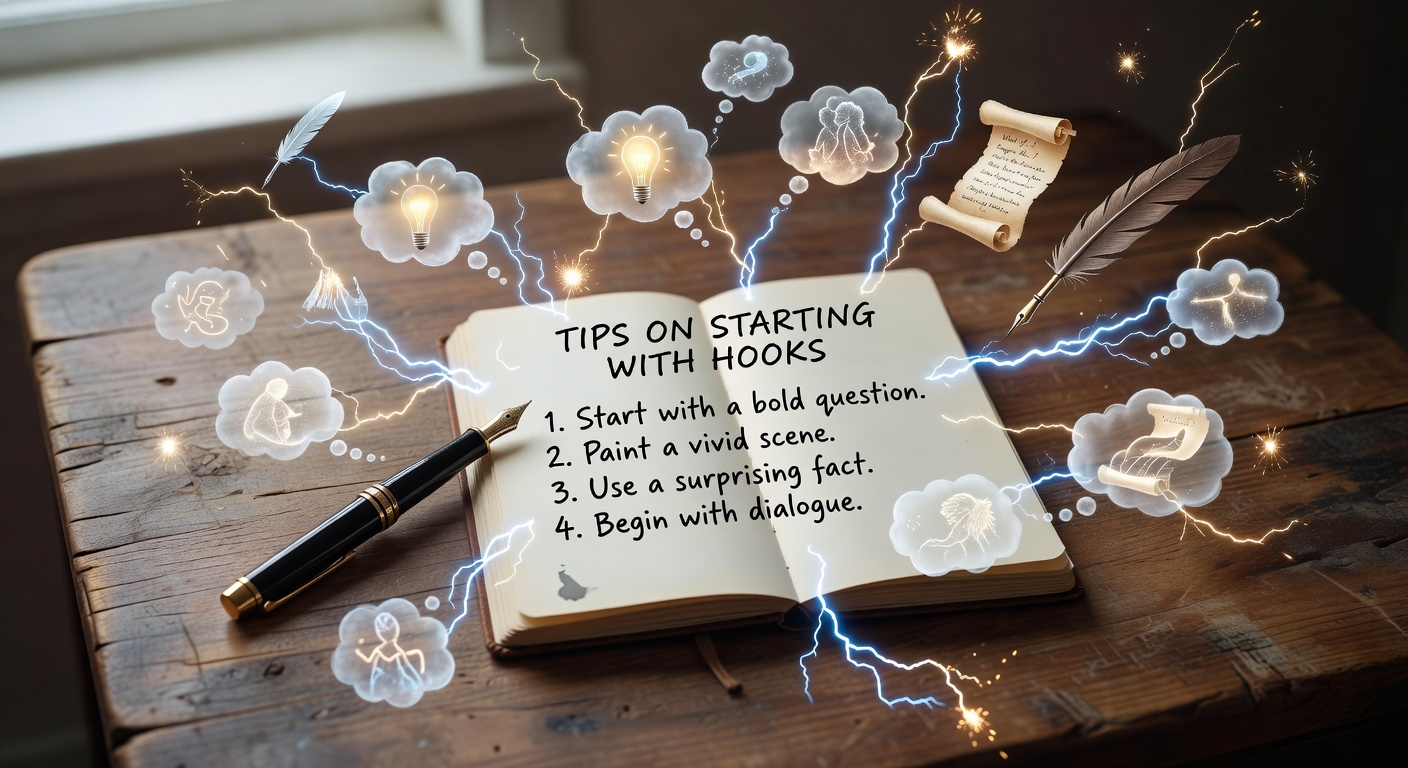 TIPS ON STARTING
WITH HOOKS
1. Start with a bold question.
2. Paint a vivid scene.
3. Use a surprising fact.
4. Begin with dialogue.